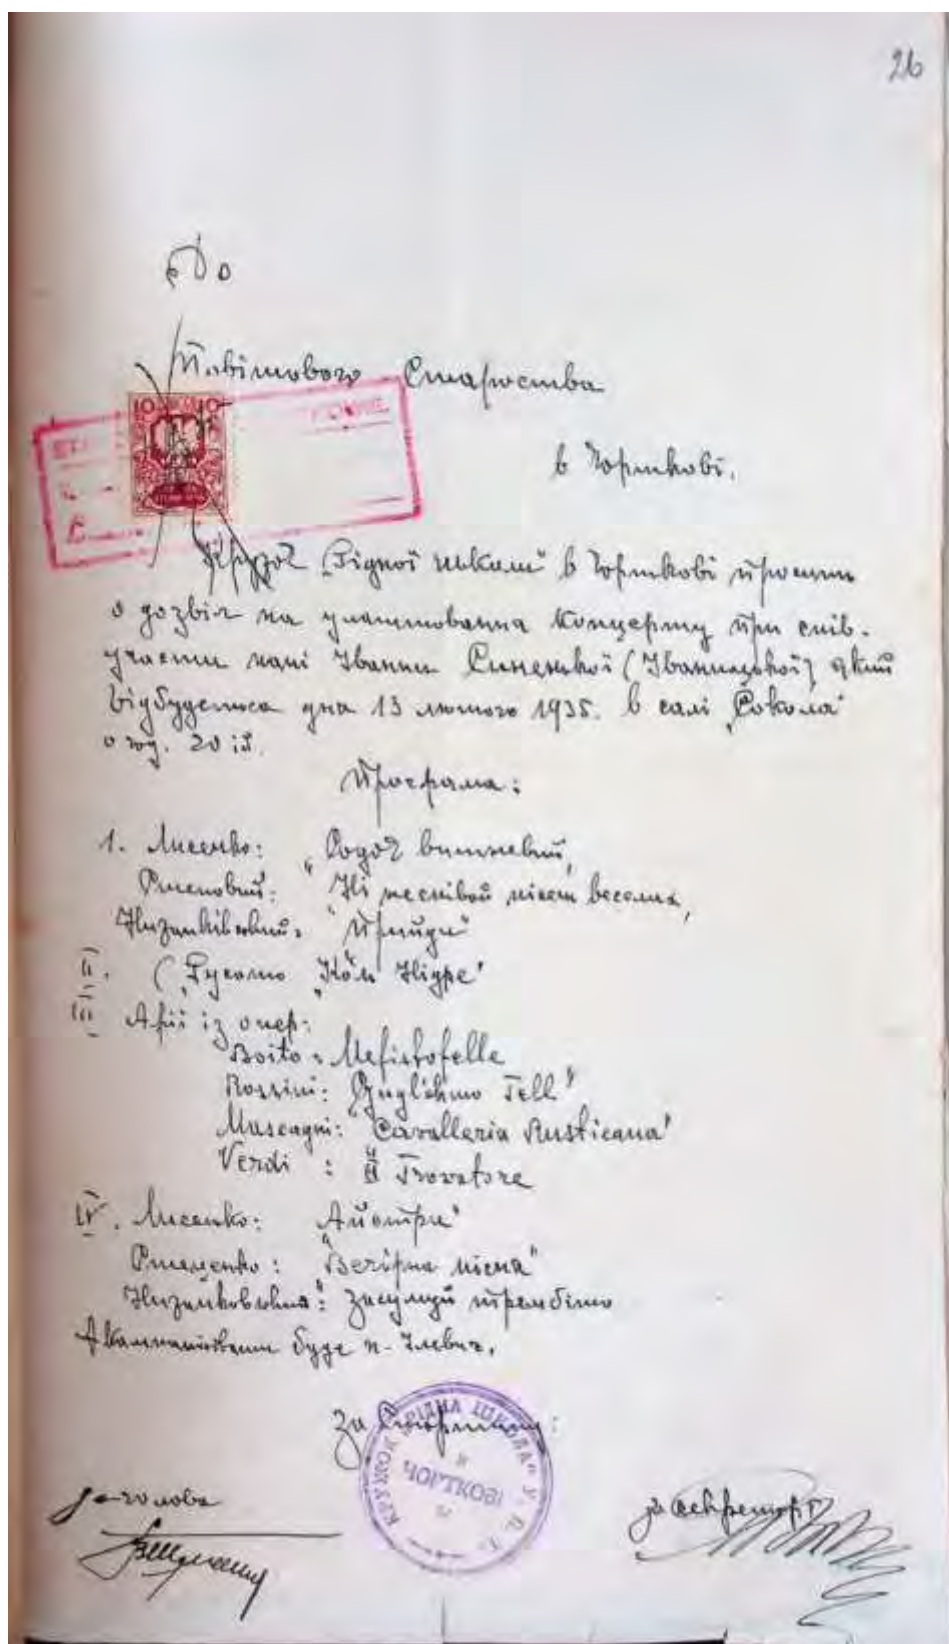 26
До
Повітового Староства
в Чорткові.
10 10
Кружок „Рідної школи" в Чорткові просить
о дозвіл на улаштовання концерту при спів-
участи пані Іванни Синенької (Іваницької) який
відбудеться дня 13 лютого 1935. в салі „Сокола"
о год. 20 ій.
Програма:
1. Лисенко: „Садок вишневий,
"Ні не співай пісень веселих,
Нижанківський: "Прийди"
II. „Кол Нідре"
III Арії із опер:
Boito: Mefistofelle
Rossini: "Guglielmo Tell"
Mascagni: "Cavalleria Rusticana"
Verdi : "Il Trovatore
IV. Лисенко: „Айстри"
"Вечірна пісня"
засумуй трембіто
буде п.
За
КРУЖОК „РІДНА ШКОЛА" У. П. Т.
В
ЧОРТКОВІ
за голова
за секретар